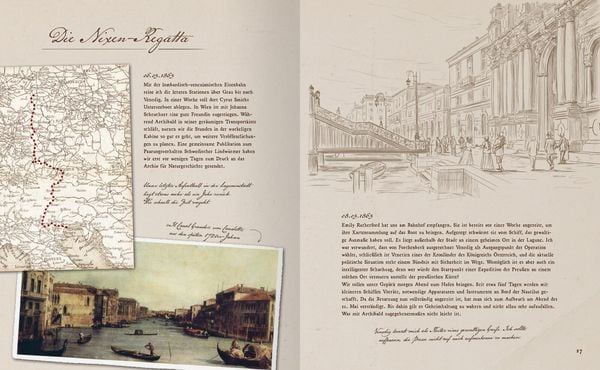 Die Nixen-Regatta
16.05.1863
Mit der lombardisch-venezianischen Eisenbahn
reise ich die letzten Stationen über Graz bis nach
Venedig. In einer Woche soll dort Cyrus Smiths
Unterseeboot ablegen. In Wien ist mir Johanna
eine gute Freundin zugestiegen. Wäh-
rend Archibald in seiner geräumigen Transportkiste
schläft, nutzen wir die Stunden in der wackeligen
Kabine so gut es geht, um weitere Veröffentlichun-
gen zu planen. Eine gemeinsame Publikation zum
Paarungsverhalten Schwedischer Lindwürmer haben
wir erst vor wenigen Tagen zum Druck an das
Archiv für Naturgeschichte gesendet.
Unser letzter Aufenthalt in der Lagunenstadt
liegt etwas mehr als ein Jahr zurück.
Wie schnell die Zeit vergeht.
Il Canal Grande von Canaletto
aus den späten 1720er-Jahren
18.05.1863
Emily Rutherford hat uns am Bahnhof empfangen. Sie ist bereits vor einer Woche angereist, um
ihre Kartensammlung auf das Boot zu bringen. Aufgeregt schwärmt sie vom Schiff, das gewalti-
ge Ausmaße haben soll. Es liegt außerhalb der Stadt an einem geheimen Ort in der Lagune. Ich
war verwundert, dass von Forchenberk ausgerechnet Venedig als Ausgangspunkt der Operation
wählte, schließlich ist Venetien eines der Kronländer des Königreichs Österreich, und die aktuelle
politische Situation steht einem Bündnis mit Sicherheit im Wege. Womöglich ist es aber auch ein
intelligenter Schachzug, denn wer würde den Startpunkt einer Expedition der Preußen an einem
solchen Ort vermuten unweit der preußischen Küste?
Wir sollen unser Gepäck morgen Abend zum Hafen bringen. Seit etwa fünf Tagen werden mit
kleineren Schiffen Vorräte, notwendige Apparaturen und Instrumente an Bord der Nautilus ge-
schafft. Da die Besatzung nun vollständig angereist ist, hat man sich zum Aufbruch am Abend des
21. Mai verständigt. Bis dahin gilt es Geheimhaltung zu wahren und nicht allzu sehr aufzufallen.
Was mit Archibald zugegebenermaßen nicht leicht ist.
Venedig kennt mich als Halter eines gewaltigen Greifs. Ich sollte
aufpassen, die Presse nicht auf mich aufmerksam zu machen.
27